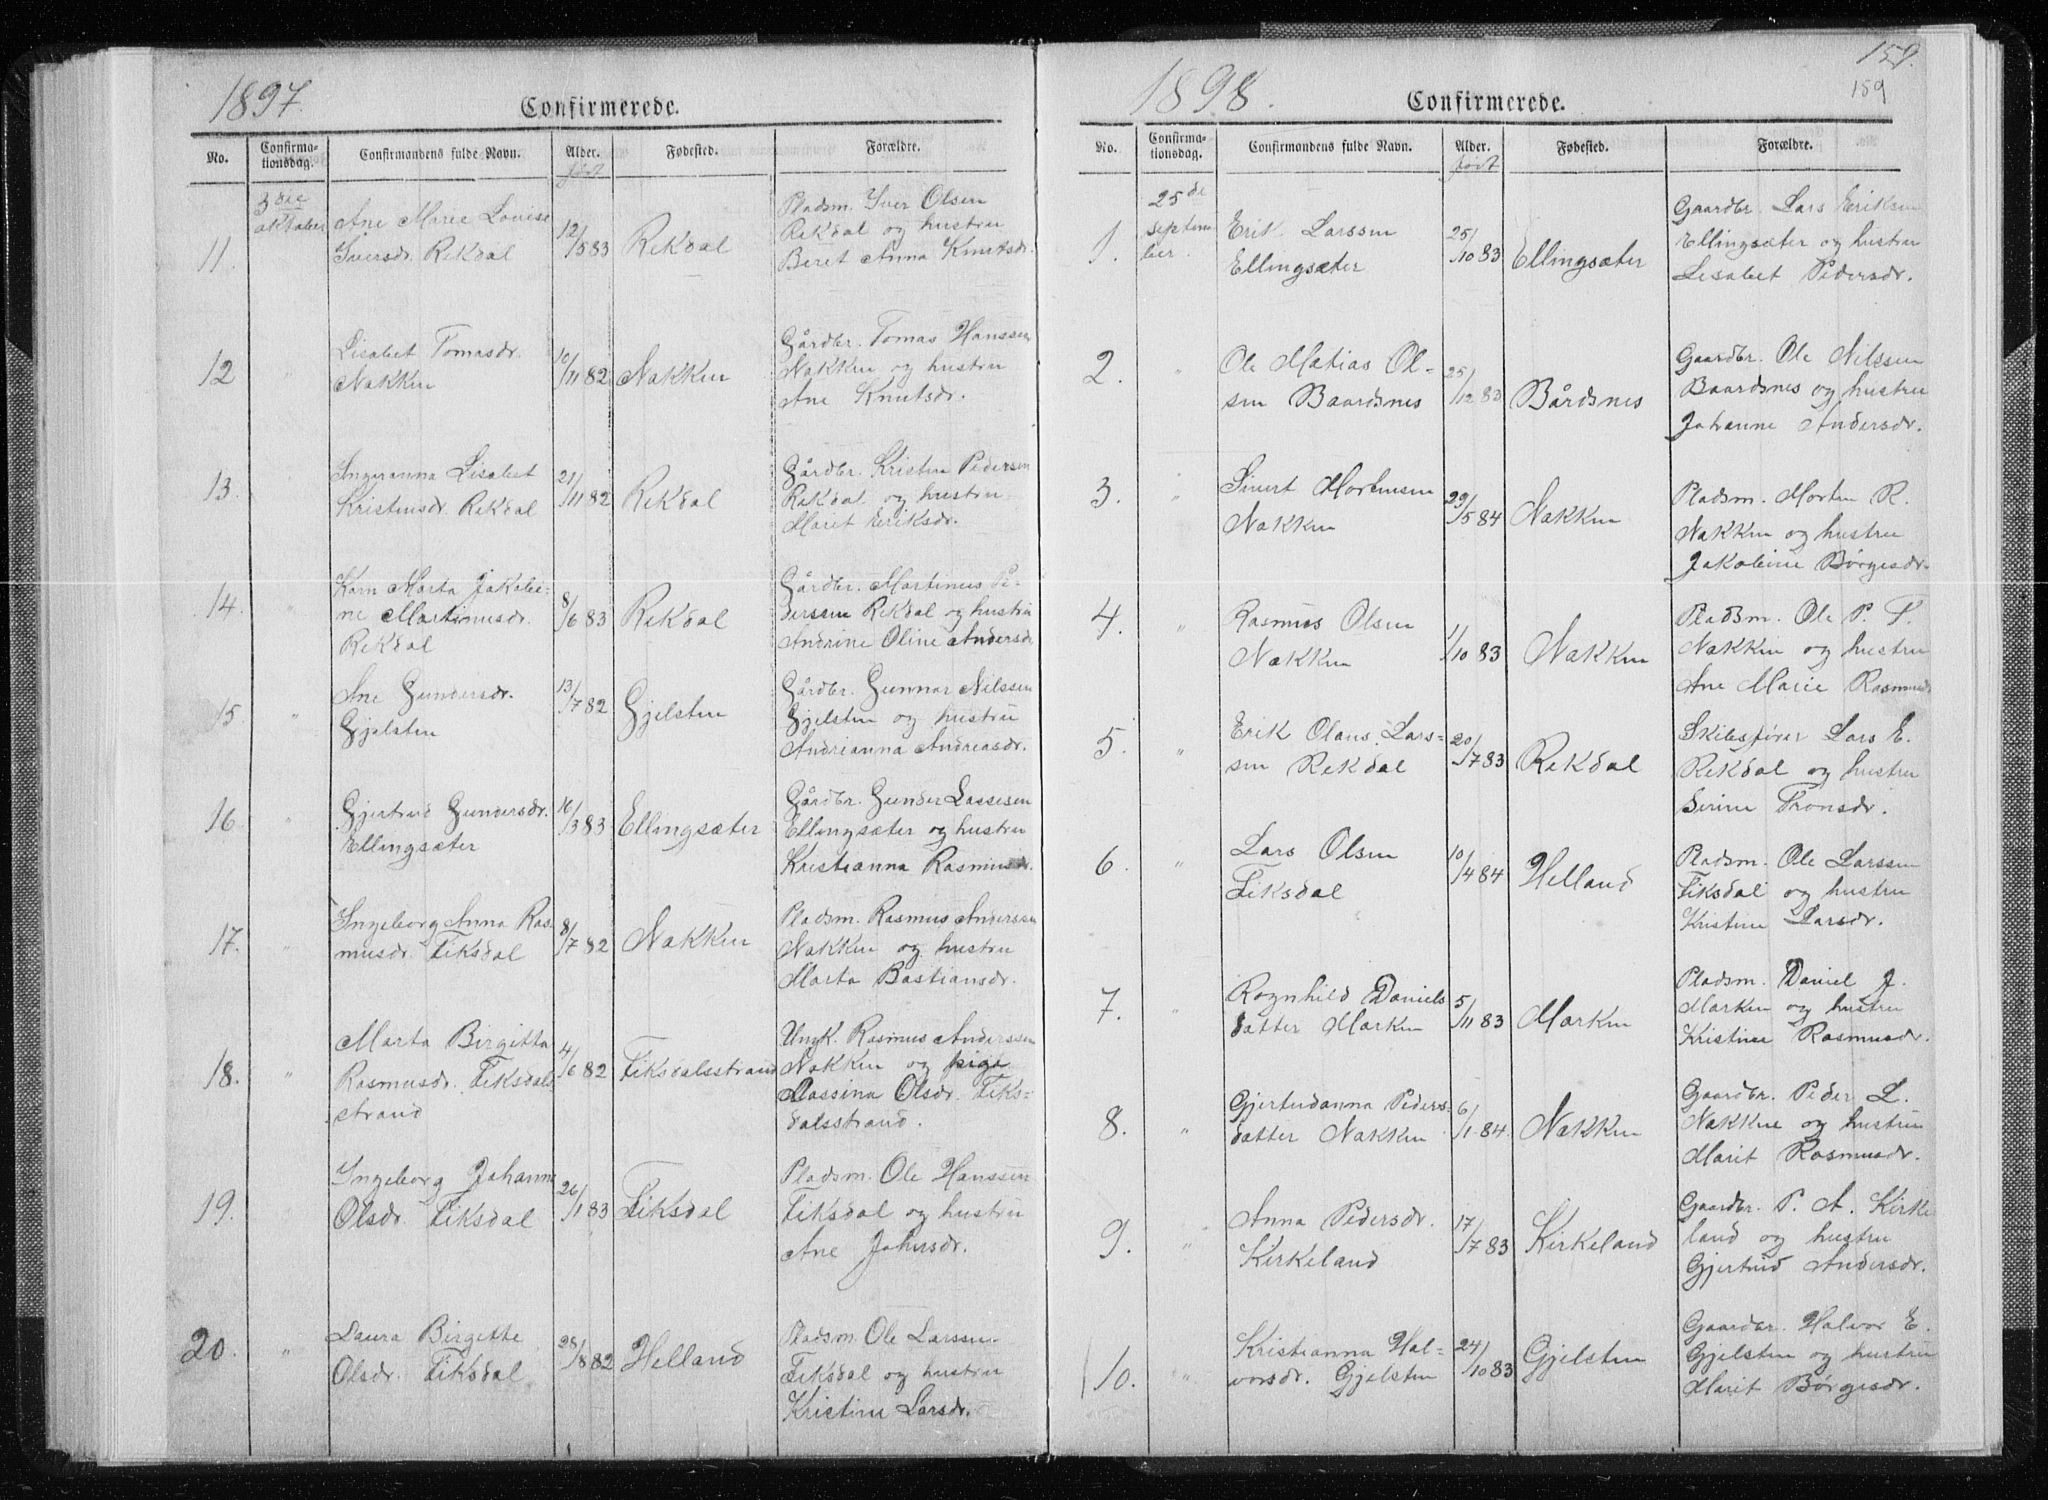 1897.
Confirmerede.
No.
Confirma-
tionsdag.
Confirmandens fulde Navn.
Alder.
født
Fødested.
Forældre.
11.
3die
oktober
Ane Marie Lovise
Iversdr. Rekdal
12/5 83
Rekdal
Pladsm. Iver Olsen
Rekdal og hustru
Beret Anna Knutsdr.
12
"
Lisabet Tomasdr.
Nakken
10/11 82
Nakken
Gårdbr. Tomas Hanssen
Nakken og hustru
Ane Knutsdr.
13.
Ingeranna Lisabet
Kristensdr. Rekdal
21/11 82
Rekdal
Gårdbr. Kristen Pedersen
Rekdal og hustru
Marit Eriksdr.
14.
"
Karn Marta Jakobi-
ne Martinusdr.
Rekdal
8/6 83
Rekdal
Gårdbr. Martinus Pe-
derssen Rekdal og hustru
Andrine Oline Andersdr
15.
"
Ane Gundersdr.
Gjelsten
13/7 82
Gjelsten
Gårdbr. Gunnar Nilssen
Gjelsten og hustru
Andrianna Andreasdr.
16
"
Gjertrud Gundersdr.
Ellingsæter
16/3 83
Ellingsæter
Gårdbr. Gunder Lassesen
Ellingsæter og hustru
Kristianna Rasmusdr.
17.
"
Ingeborg Anna Ras-
musdr. Fiksdal
8/7 82
Nakken
Pladsm. Rasmus Anderssen
Nakken og hustru
Marta Bastiansdr.
18.
"
Marta Birgitta
Rasmusdr. Fiksdals
strand
4/6 82
Fiksdalsstrand
Ungk. Rasmus Anderssen
Nakken og pige
Massina Olsdr. Fiks-
dalsstrand.
19.
Ingeborg Johanne
Olsdr. Fiksdal
26/1 83
Fiksdal
Pladsm. Ole Hanssen
Fiksdal og hustru
Ane Johnsdr.
20.
"
Laura Birgitte
Olsdr. Fiksdal
28/8 82
Helland
Pladsm. Ole Larssen
Fiksdal og hustru
Kristine Larsdr.
159.
159
1898.
Confirmerede.
No.
Confirma-
tionsdag.
Confirmandens fulde Navn.
Alder.
født
Fødested.
Forældre.
1.
25de
septem
ber.
Erik Larssen
Ellingsæter
25/10 83
Ellingsæter
Gaardbr. Lars Eriksen
Ellingsæter og hustru
Lisabet Pedersdr.
2.
"
Ole Matias Ol-
sen Baardsnes
25/12 83
Bårdsnes
Gaardbr. Ole Nilssen
Baardsnes og hustru
Johanne Andersdr.
3.
"
Sivert Mortensen
Nakken
29/5 84
Nakken
Pladsm. Morten R.
Nakken og hustru
Jakobine Børgesdr.
4.
"
Rasmus Olsen
Nakken
1/10 83
Nakken
Pladsm. Ole P. T.
Nakken og hustru
Ane Marie Rasmusd
5.
"
Erik Olaus Lars-
sen Rekdal
20/7 83
Rekdal
Skibsfører Lars E.
Rekdal og hustru
Serine Tronsdr.
6.
"
Lars Olsen
Fiksdal
10/4 84
Helland
Pladsm. Ole Larssen
Fiksdal og hustru
Kristine Larsdr.
7.
"
Ragnhild Daniels
datter Marken
5/11 83
Marken
Pladsm. Daniel J.
Marken og hustru
Kristine Rasmusdr.
8.
"
Gjertrudanna Peders-
datter Nakken
6/1 84
Nakken
Gaardbr. Peder L.
Nakken og hustru
Marit Rasmusdr.
9.
"
Anna Pedersdr.
Kirkeland
17/7 83
Kirkeland
Gaardbr. P. A. Kirke
land og hustru
Gjertrud Andersdr.
10.
"
Kristianna Hal-
vorsdr. Gjelsten
24/10 83
Gjelsten
Gaardbr. Halvor E.
Gjelsten og hustru
Marit Børgesdr.